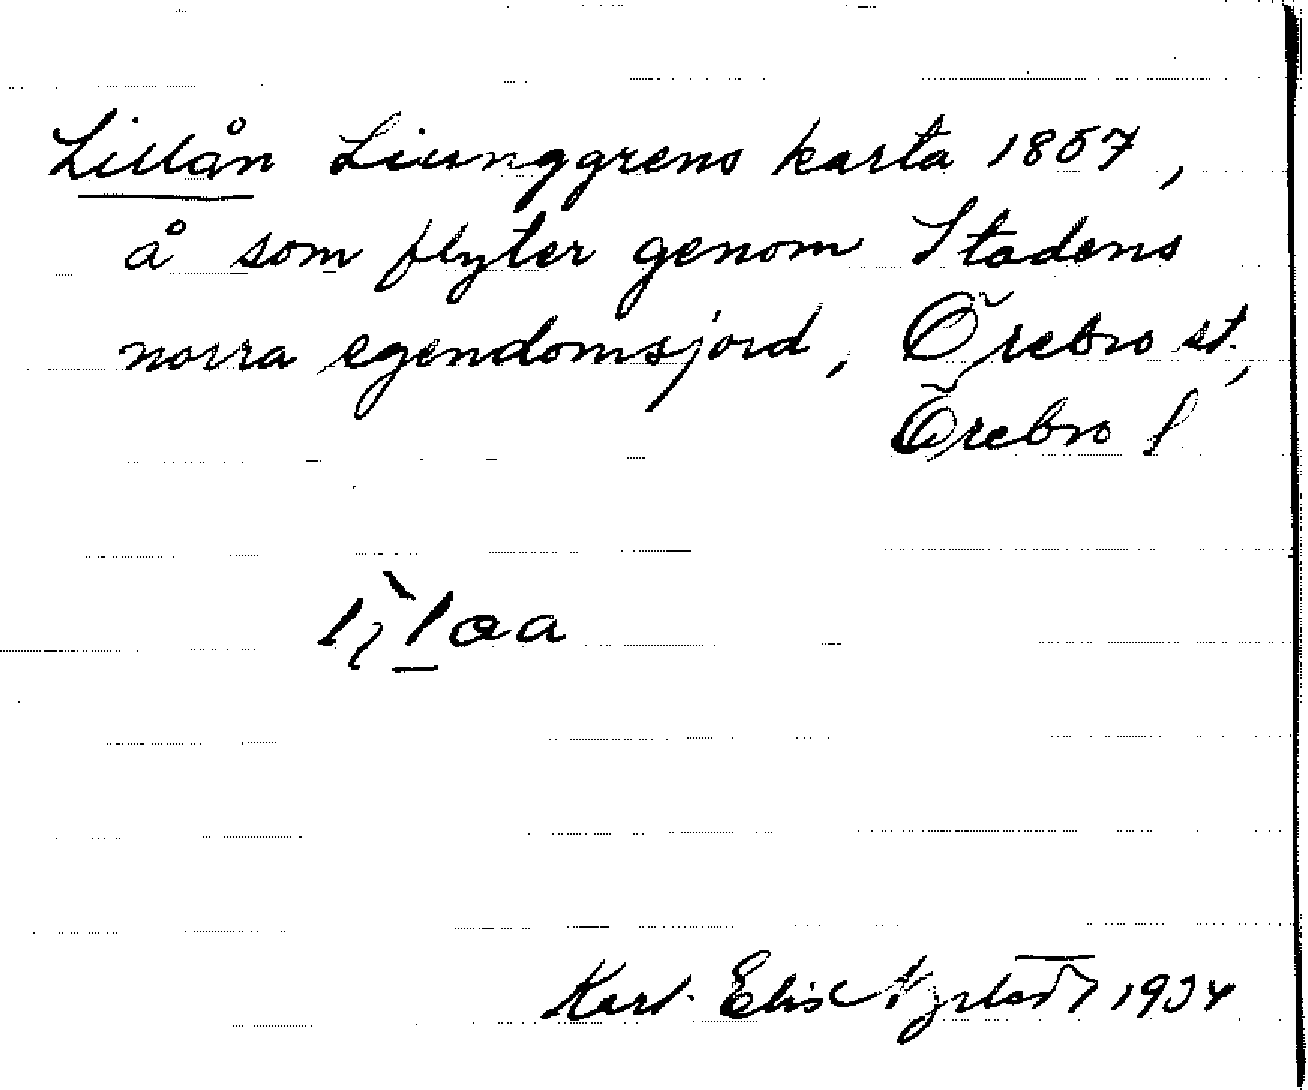 Lillån Ljunggrens karta 1857,
å som flyter genom Stadens
norra egendomsjord, Örebro st.,
Örebro l
Karl Elis 1934